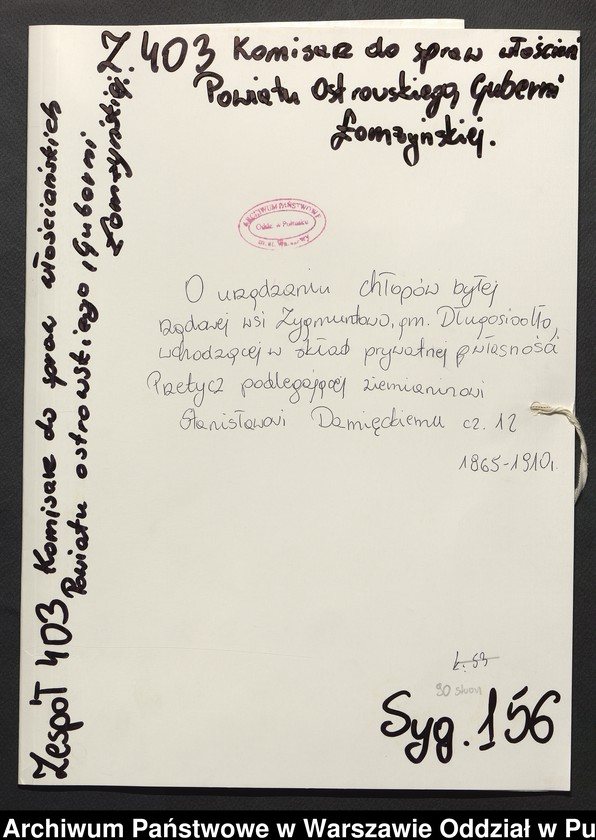 Z 403 Komisarz do spraw włościań
Powiatu Ostrowskiego, Guberni
Łomżyńskiej.
Zespół 403 Komisarz do spraw włościańskich
Powiatu ostrowskiego, Guberni
Łomżyńskiej.
ARCHIWUM PAŃSTWOWE
Oddz. w Pułtusku
m. st. Warszawy
O urządzaniu chłopów byłej
rządowej wsi Zygmuntowo, gm. Długosiodło,
wchodzącej w skład prywatnej własności
Przetycz podlegającej ziemianinowi
Stanisławowi Damięckiemu cz. 12
1865-1910r.
k. 53
90 stron
Syg. 156
Archiwum Państwowe w Warszawie Oddział w Pu